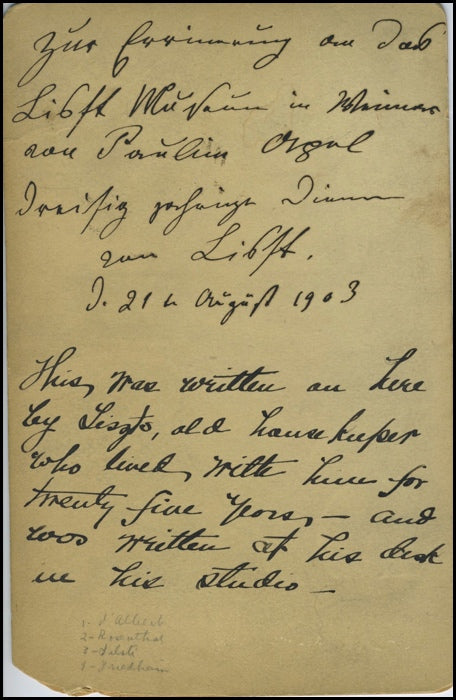 Zur Errinerung an das
Lisft Museum in Weimar
von Pauline Apel
dreisig jährige Diener
von Lisft.
d. 21 t. August 1903
This, was written on here
by Liszts, old housekeeper
who lived, with him for
twenty five years, – and
was written at his desk
in his studio –
1- d'Albert
2- Rosenthal
3-
4- Friedheim